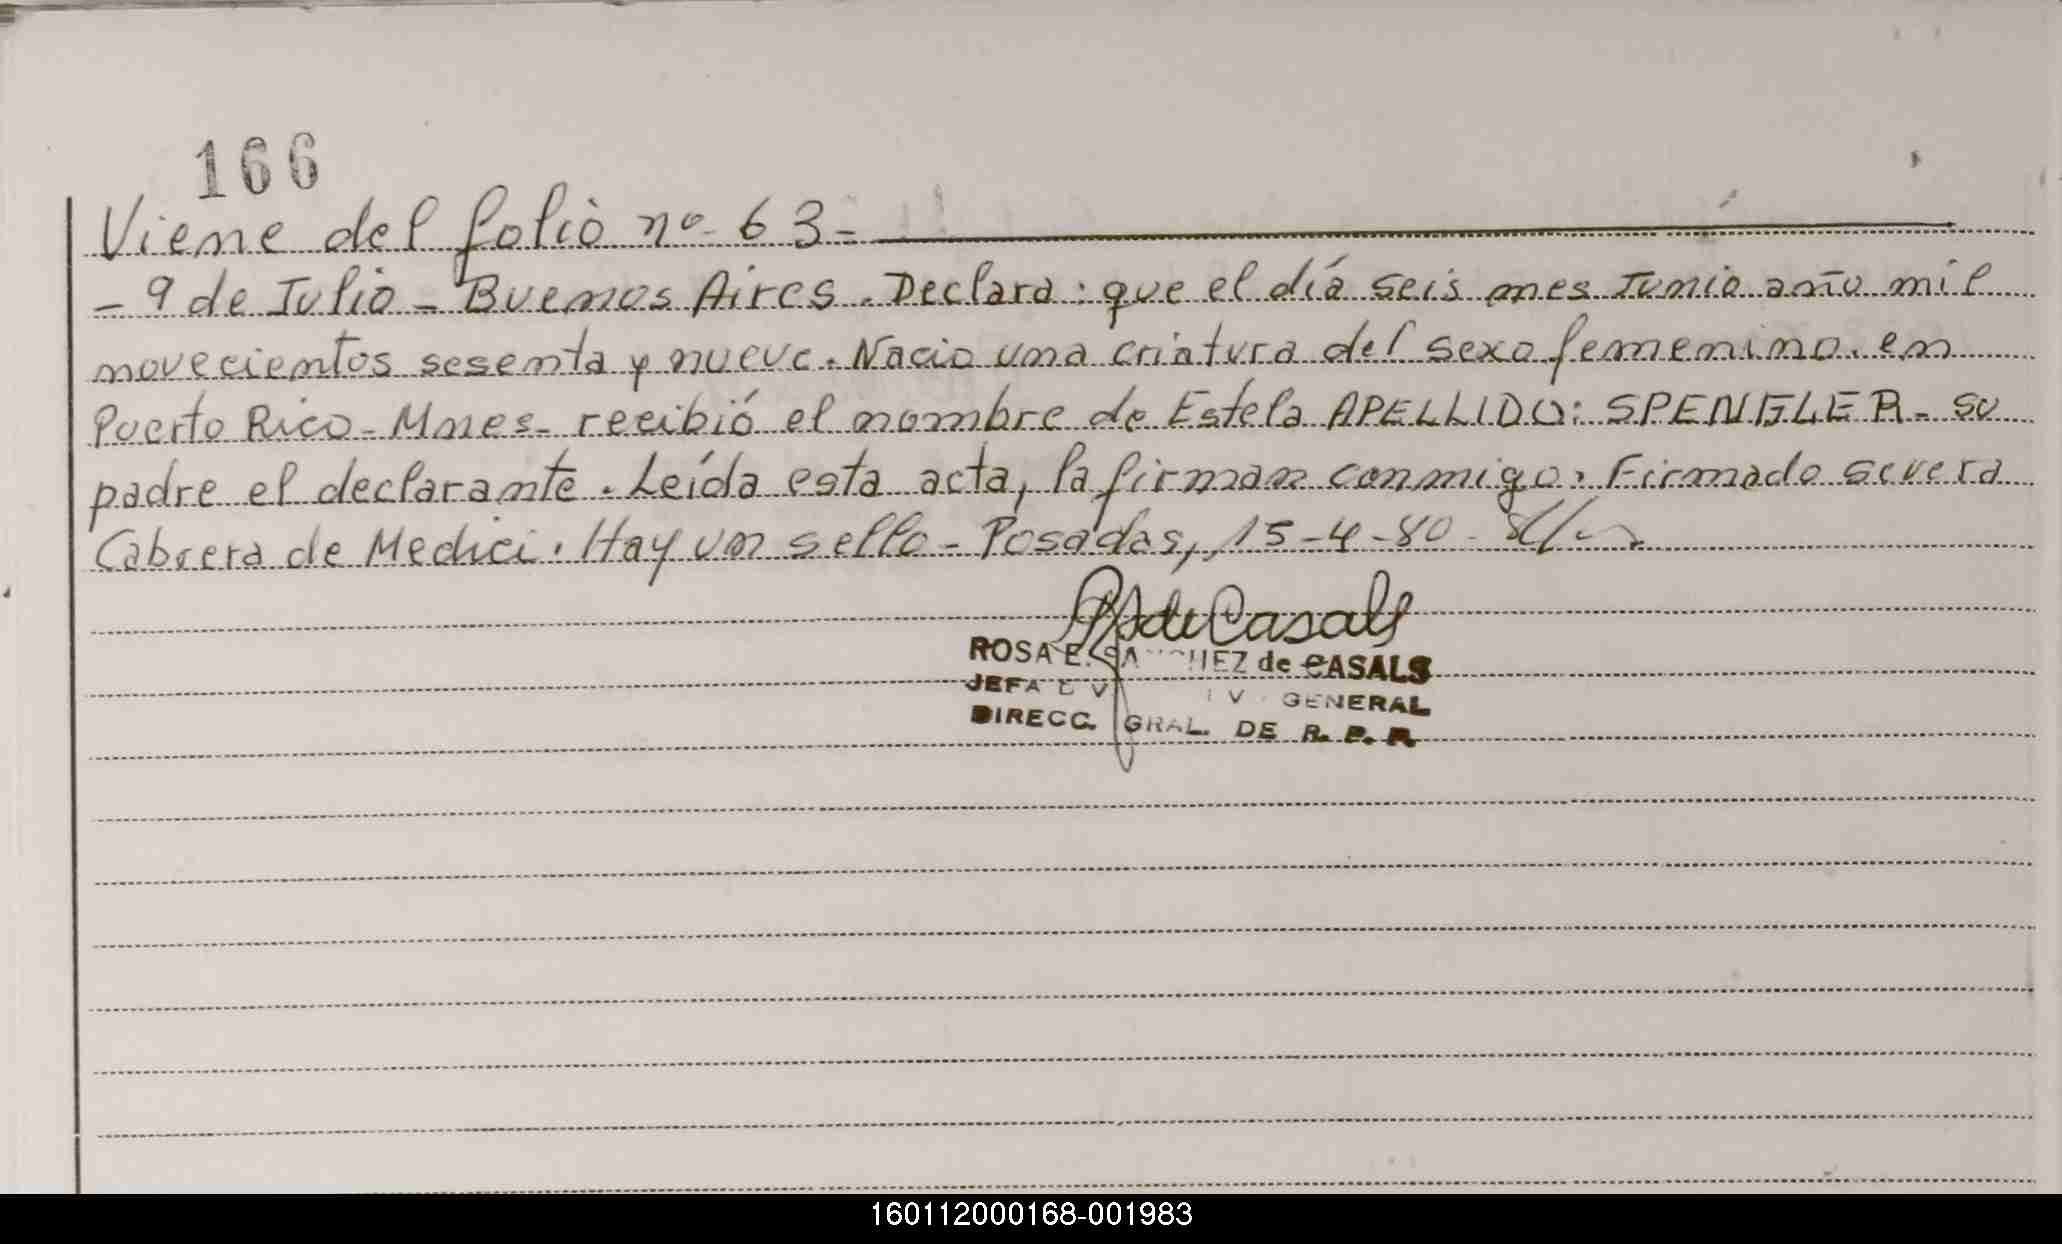 166
Viene del folio nº 63-
- 9 de Julio - Buenos Aires. Declara: que el día seis mes Junio año mil
novecientos sesenta y nueve. Nacio una criatura del sexo femenino. en
Puerto Rico - Mnes - recibió el nombre de Estela APELLIDO: SPENGLER - su
padre el declarante. Leída esta acta, la firman conmigo. Firmado Severa
Cabrera de Medici. Hay un sello - Posadas, 15-4-80 -
de Casals
ROSA E. SANCHEZ de CASALS
JEFA GENERAL
DIRECC. GRAL. DE R. P. P.
160112000168-001983